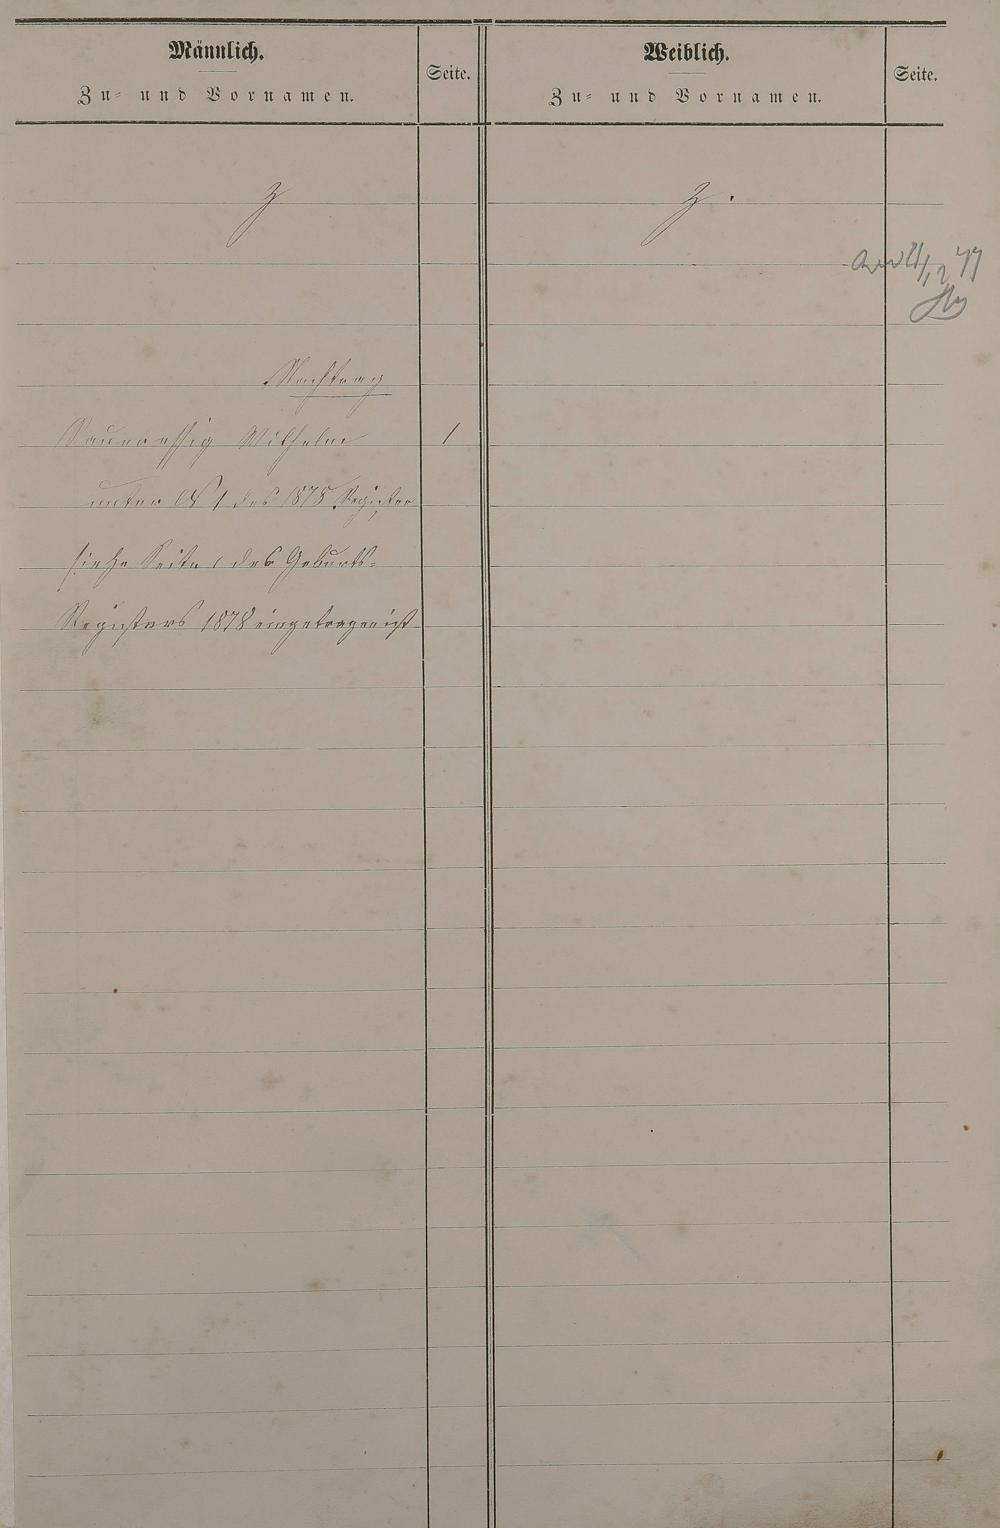 Männlich.
Zu= und Vornamen.
Seite.
Weiblich.
Zu= und Vornamen.
Seite.
Z
Z.
21/12 77
Nachtrag
Saueressig Wilhelm 1
unter No 1 des 1878 Register
siehe Seite 1 des Geburts-
Registers 1878 eingetragen ist